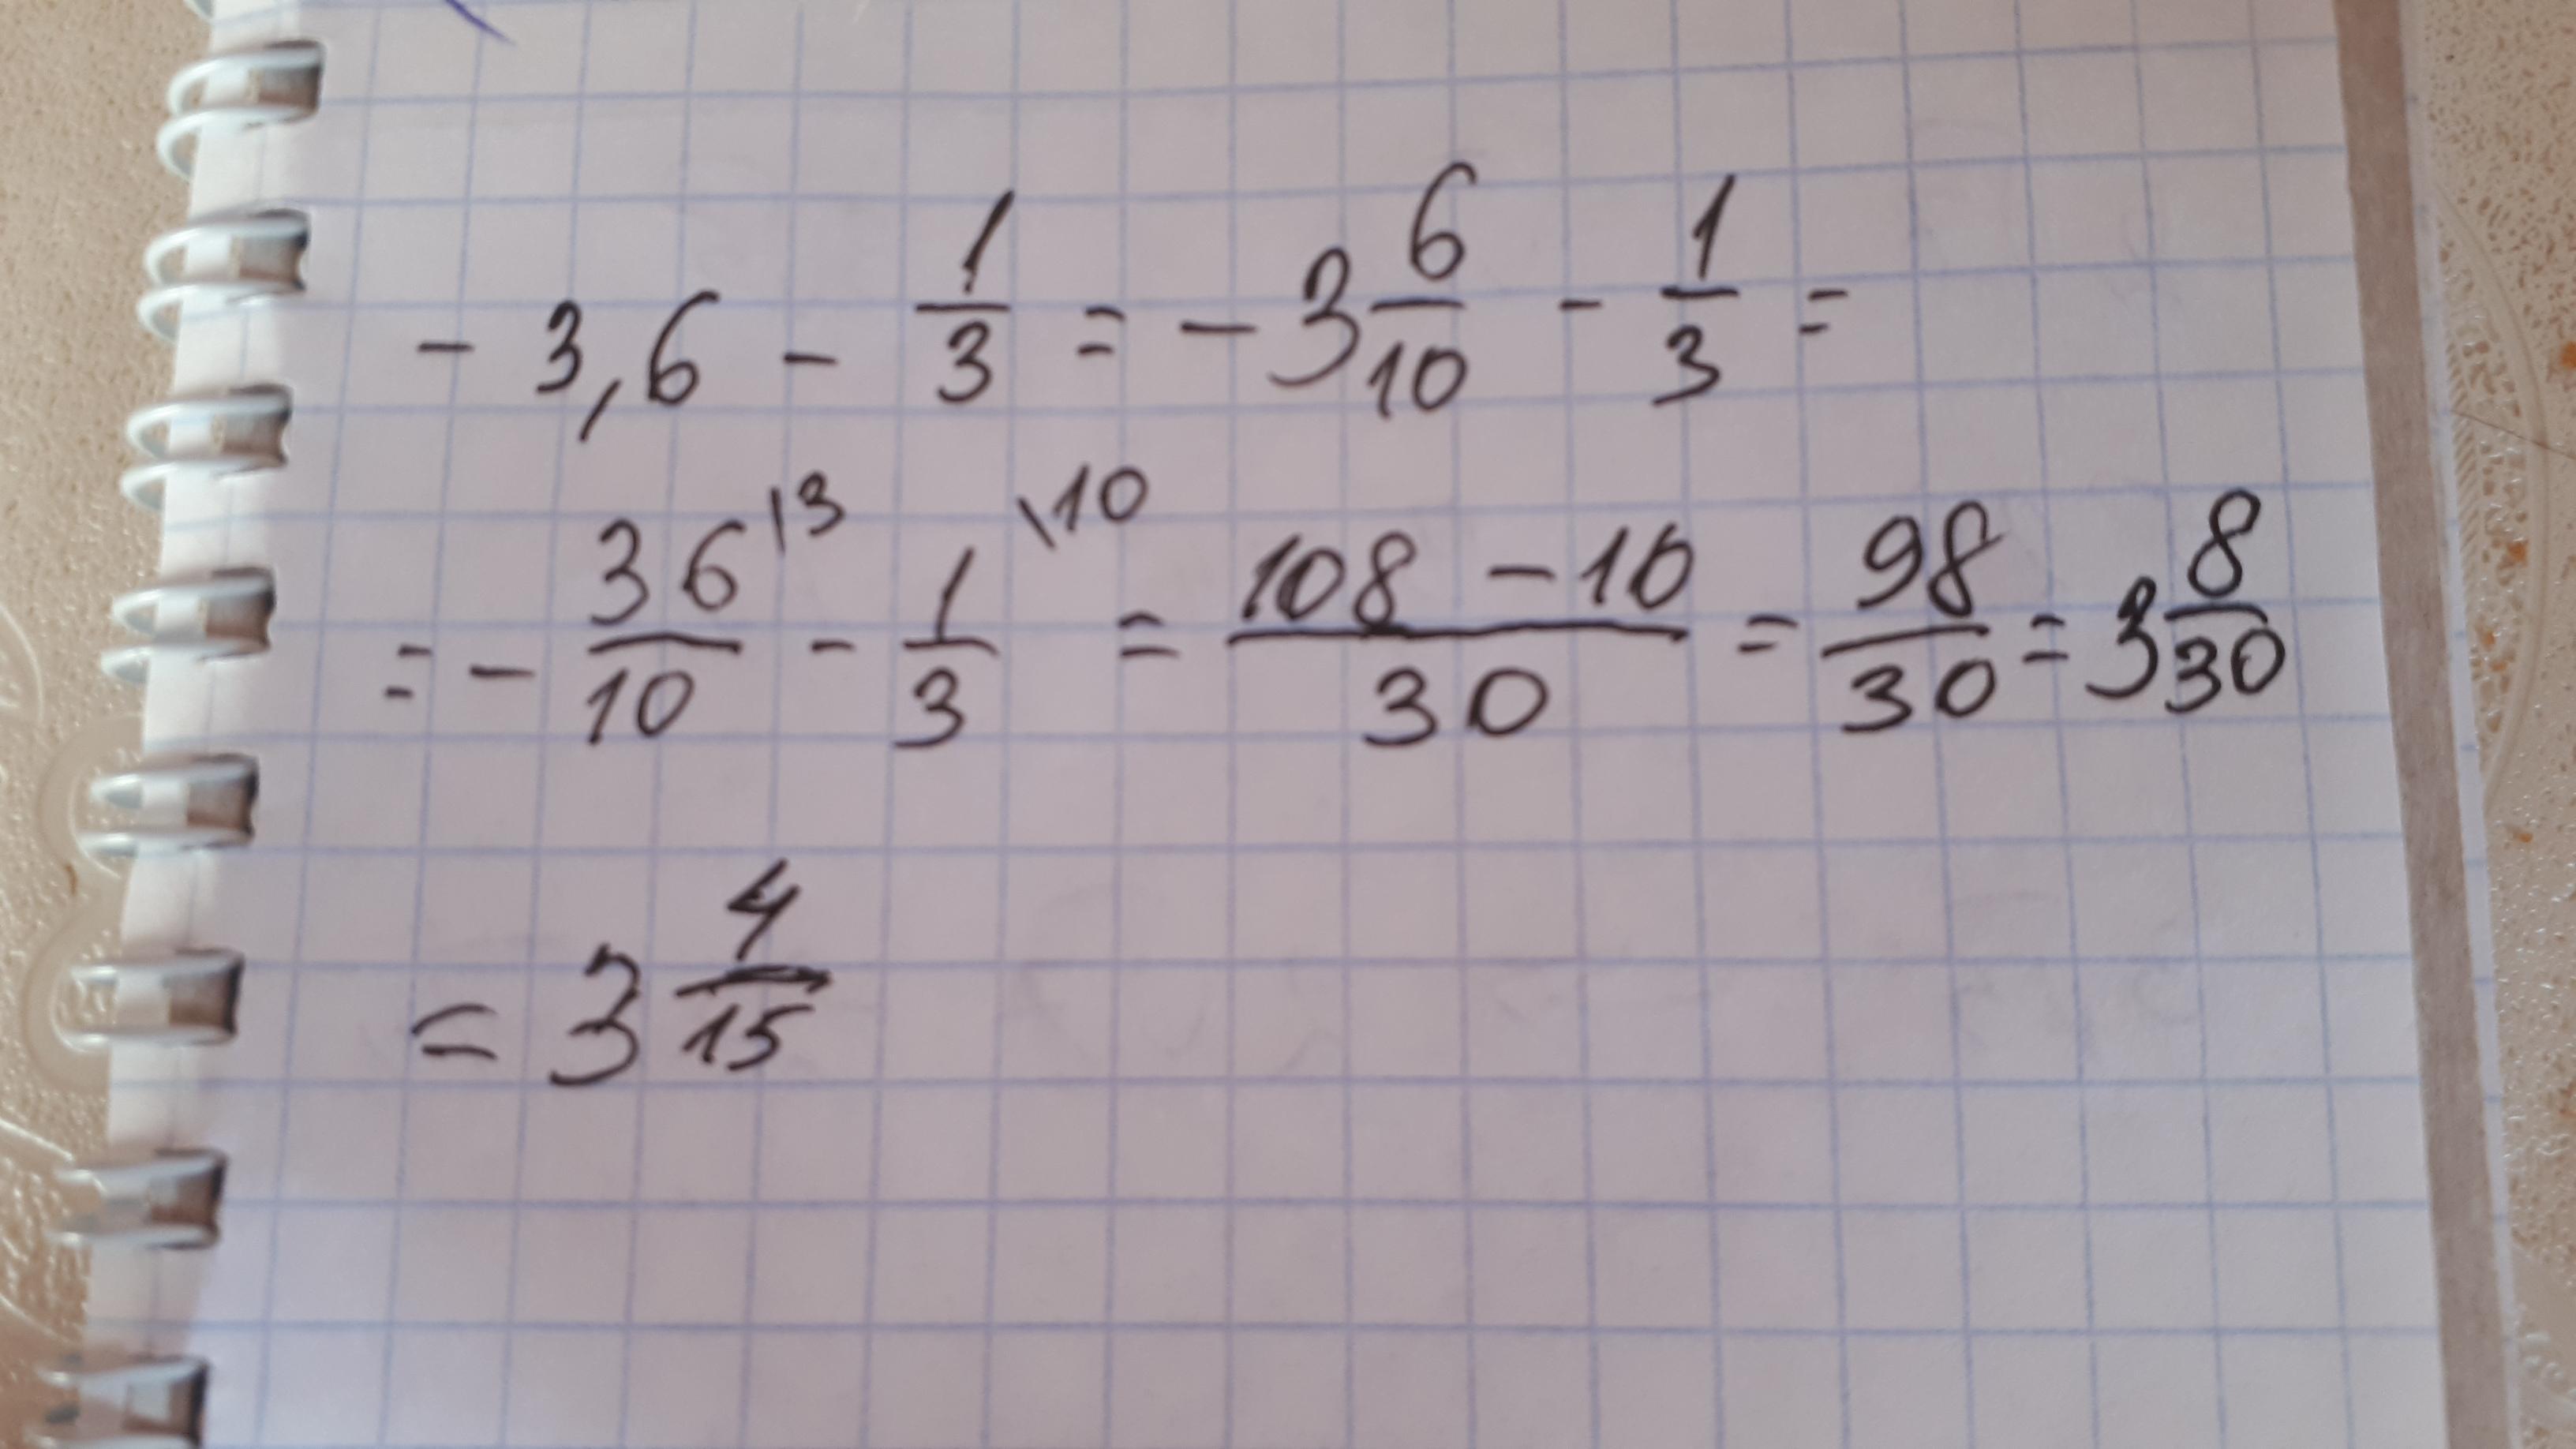 - 3,6 - 1/3 = - 3 6/10 - 1/3 =
= - 36/10 \3 - 1/3 \10 = (108 - 10)/30 = 98/30 = 3 8/30
= 3 4/15